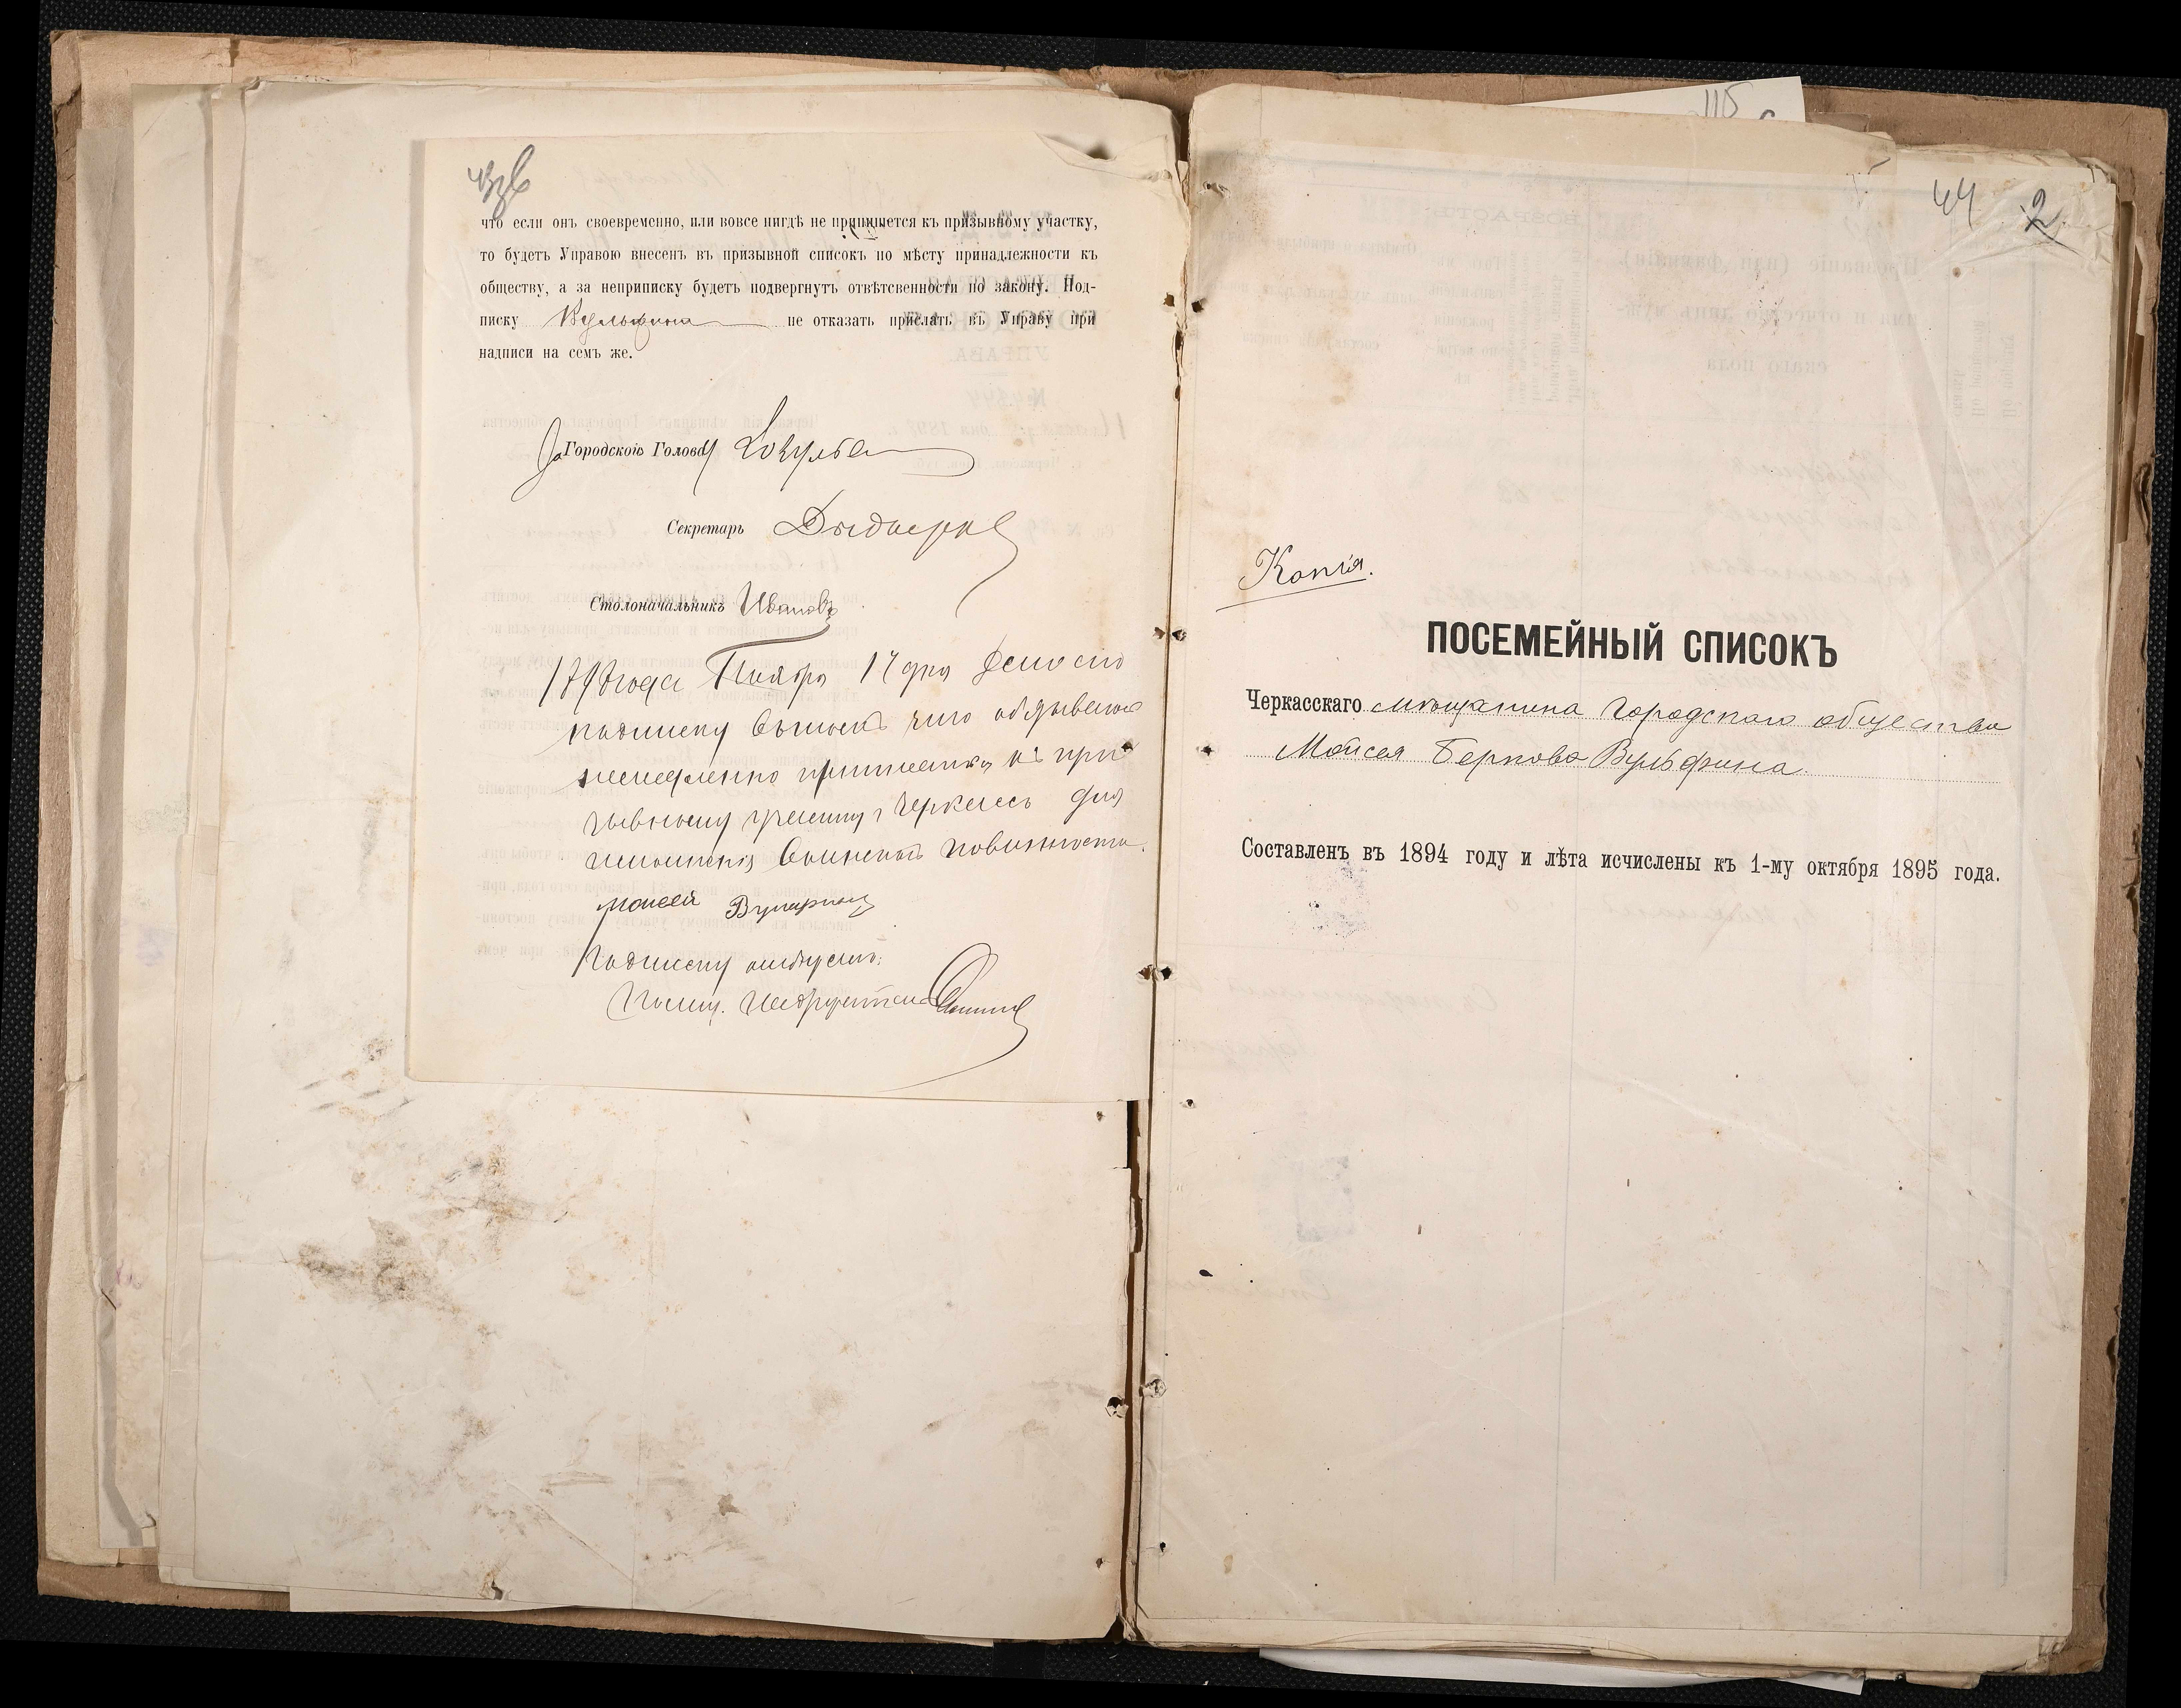 43 об
что если онъ своевременно, или вовсе нигдѣ не припишется къ призывному участку,
то будетъ Управою внесенъ въ призывной списокъ по мѣсту принадлежности къ
обществу, а за неприписку будетъ подвергнутъ отвѣтсвенности по закону. Под-
писку Вульфина не отказать прислать въ Управу при
надписи на семъ же.
За Городского Голову
Секретарь
Столоначальникъ Ивановъ
года Ноября 17 дня
подписку въ томъ что обязываюсь
немедленно приписаться къ при
зывному участку г Черкассъ для
исполненія воинской повинности.
Моисей Вульфинъ
Подписку отобралъ:
115
44 2
Копія.
ПОСЕМЕЙНЫЙ СПИСОКЪ
Черкасскаго мѣщанина городского общества
Мойсея Беркова Вульфина.
Составленъ въ 1894 году и лѣта исчислены къ 1-му октября 1895 года.